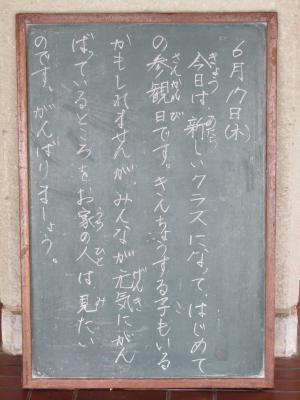 6月17日(水)
今日は、新しいクラスになって、はじめて
の参観日です。きんちょうする子もいる
かもしれませんが、みんなが元気にがん
ばっているところをお家の人は見たい
のです。がんばりましょう。